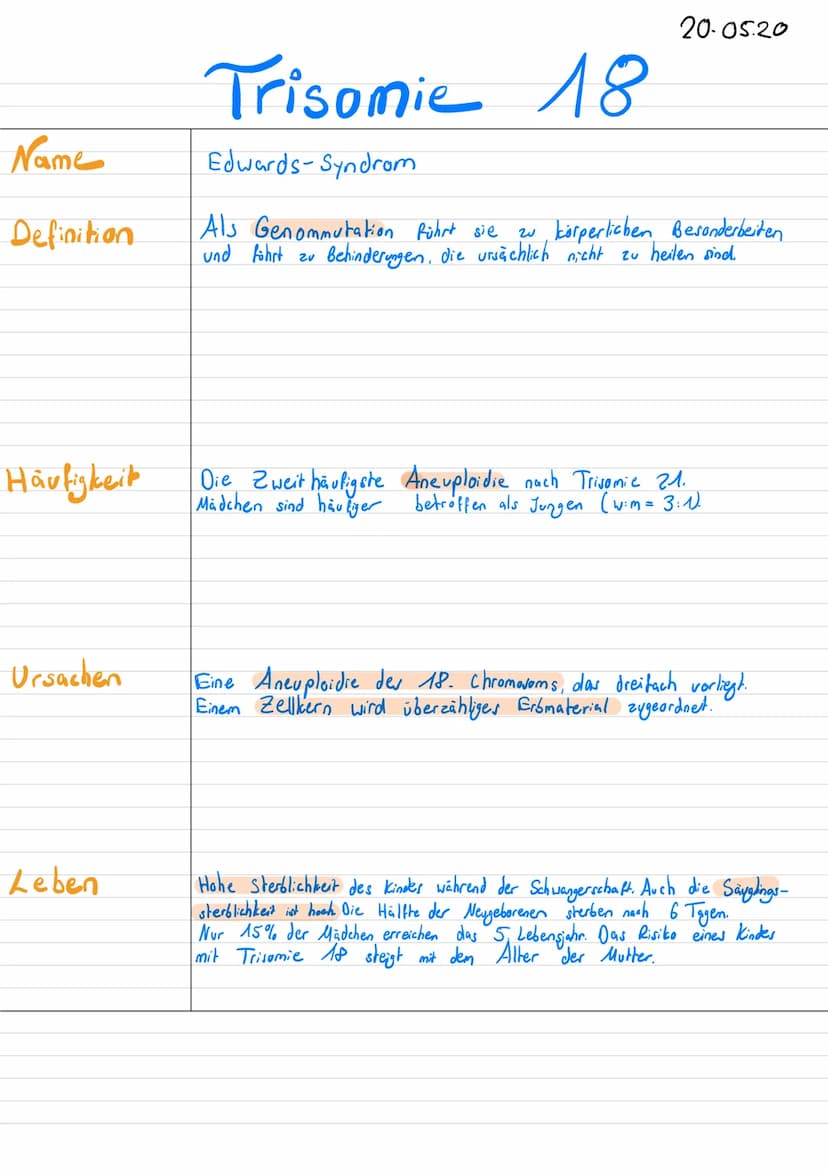 20.05.20
Trisomie 18
Name
Edwards-Syndrom
Definition
Als Genommutation führt sie zu körperlichen Besonderheiten
und führt zu Behinderungen, die ursächlich nicht zu heilen sind.
Häufigkeit
Die Zweithäufigste Aneuploidie nach Trisomie 21.
Mädchen sind häufiger betroffen als Jungen (w:m = 3:1)
Ursachen
Eine Aneuploidie des 18. Chromosoms, das dreifach vorliegt.
Einem Zellkern wird überzähliges Erbmaterial zugeordnet.
Leben
Hohe Sterblichkeit des Kindes während der Schwangerschaft. Auch die Säuglings-
sterblichkeit ist hoch. Die Hälfte der Neugeborenen sterben nach 6 Tagen.
Nur 15% der Mädchen erreichen das 5. Lebensjahr. Das Risiko eines Kindes
mit Trisomie 18 steigt mit dem Alter der Mutter.